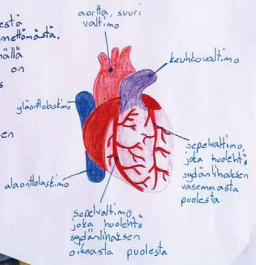 estä
mettömästä.
ällä
on
s
en
aortta, suuri
valtimo
keuhkovaltimo
yläonttolaskimo
alaonttolaskimo
sepelvaltimo,
joka huolehtii
sydänlihaksen
vasemmasta
puolesta
sepelvaltimo,
joka huolehtii
sydänlihaksen
oikeasta puolesta